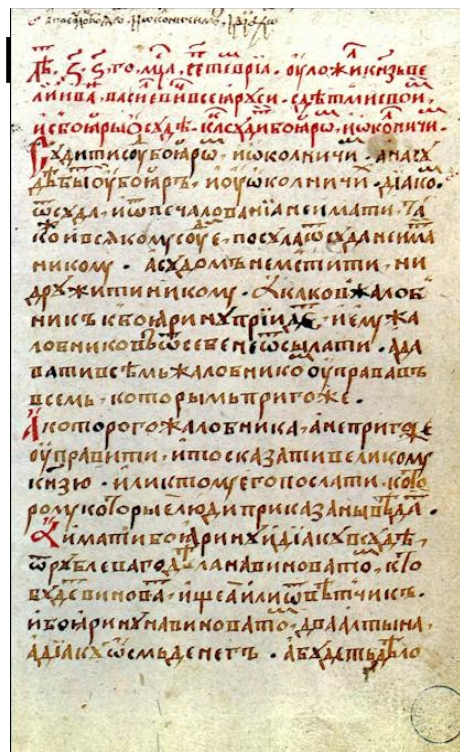 лѣ҃, ҂ЗS҃, го, мц҃а, септеврїа. оуложи кнѧзь ве
лїи ива, васиевїи всеѧ рꙋси. с дѣтми свои,
и с боѧры ѡ сꙋдѣ. ка сꙋдїи боѧрѡ, и ѡколничи.
Сꙋдити сꙋ боѧрѡ, и ѡколничи. а на сꙋ
дѣ бы оу боѧръ, и оу ѡколничи. дїако.
ѿ сꙋда, и ѿ печалованїа не имати. та
кои всѧкомꙋ соуе, посꙋла ѿ сꙋда не има
никомꙋ. а сꙋдомъ не мстити, ни
дрꙋжити никомꙋ. а каковъ жалоб
никъ к боѧринꙋ прїиде, и емꙋ жа
лобниковъ ѿ себе не ѿсылати. а да
вати всѣмъ жалобнико оуправа въ
всемь, которымъ пригоже.
А которого жалобника, а не пригоже
оуправити, и то сказати великомꙋ
кнѧзю. или к томꙋ его послати, кото
ромꙋ которые люди приказаны вѣда.
А имати боѧринꙋ и дїакꙋ в сꙋдѣ,
ѿ рꙋблева го дѣла на виновато, кто
бꙋде винова, ищеа или ѿвѣтчикъ.
и боѧринꙋ на виновато, два алтына,
а дїакꙋ ѡсмь денегъ. а бꙋдетъ дѣло